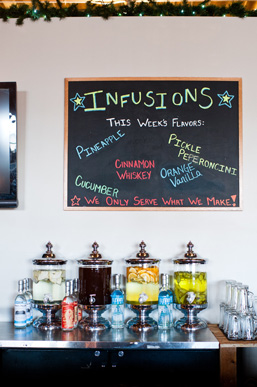 INFUSIONS
THIS WEEK'S FLAVORS:
PINEAPPLE
PICKLE
PEPERONCINI
CINNAMON
WHISKEY
ORANGE
Vanilla
CUCUMBER
WE ONLY SERVE WHAT WE MAKE!